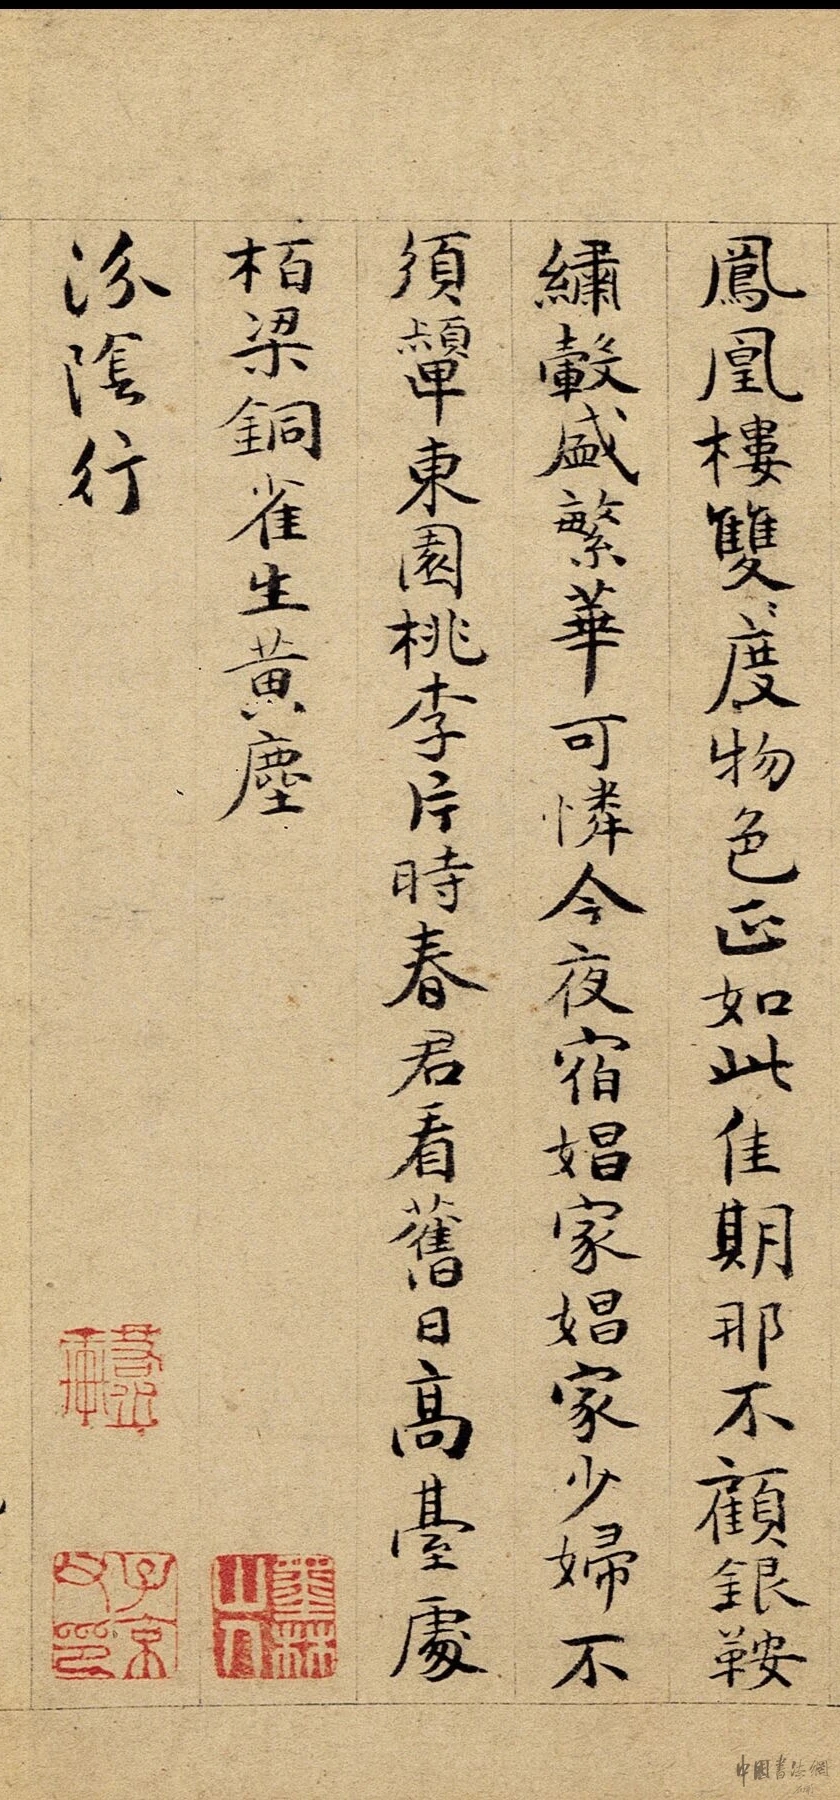 鳳凰樓雙〻度物色正如此佳期那不顧銀鞍
繡轂盛繁華可憐今夜宿娼家娼家少婦不
須顰東園桃李片時春君看舊日高臺處
栢梁銅雀生黃塵
汾陰行
子京
父印
中国书法网